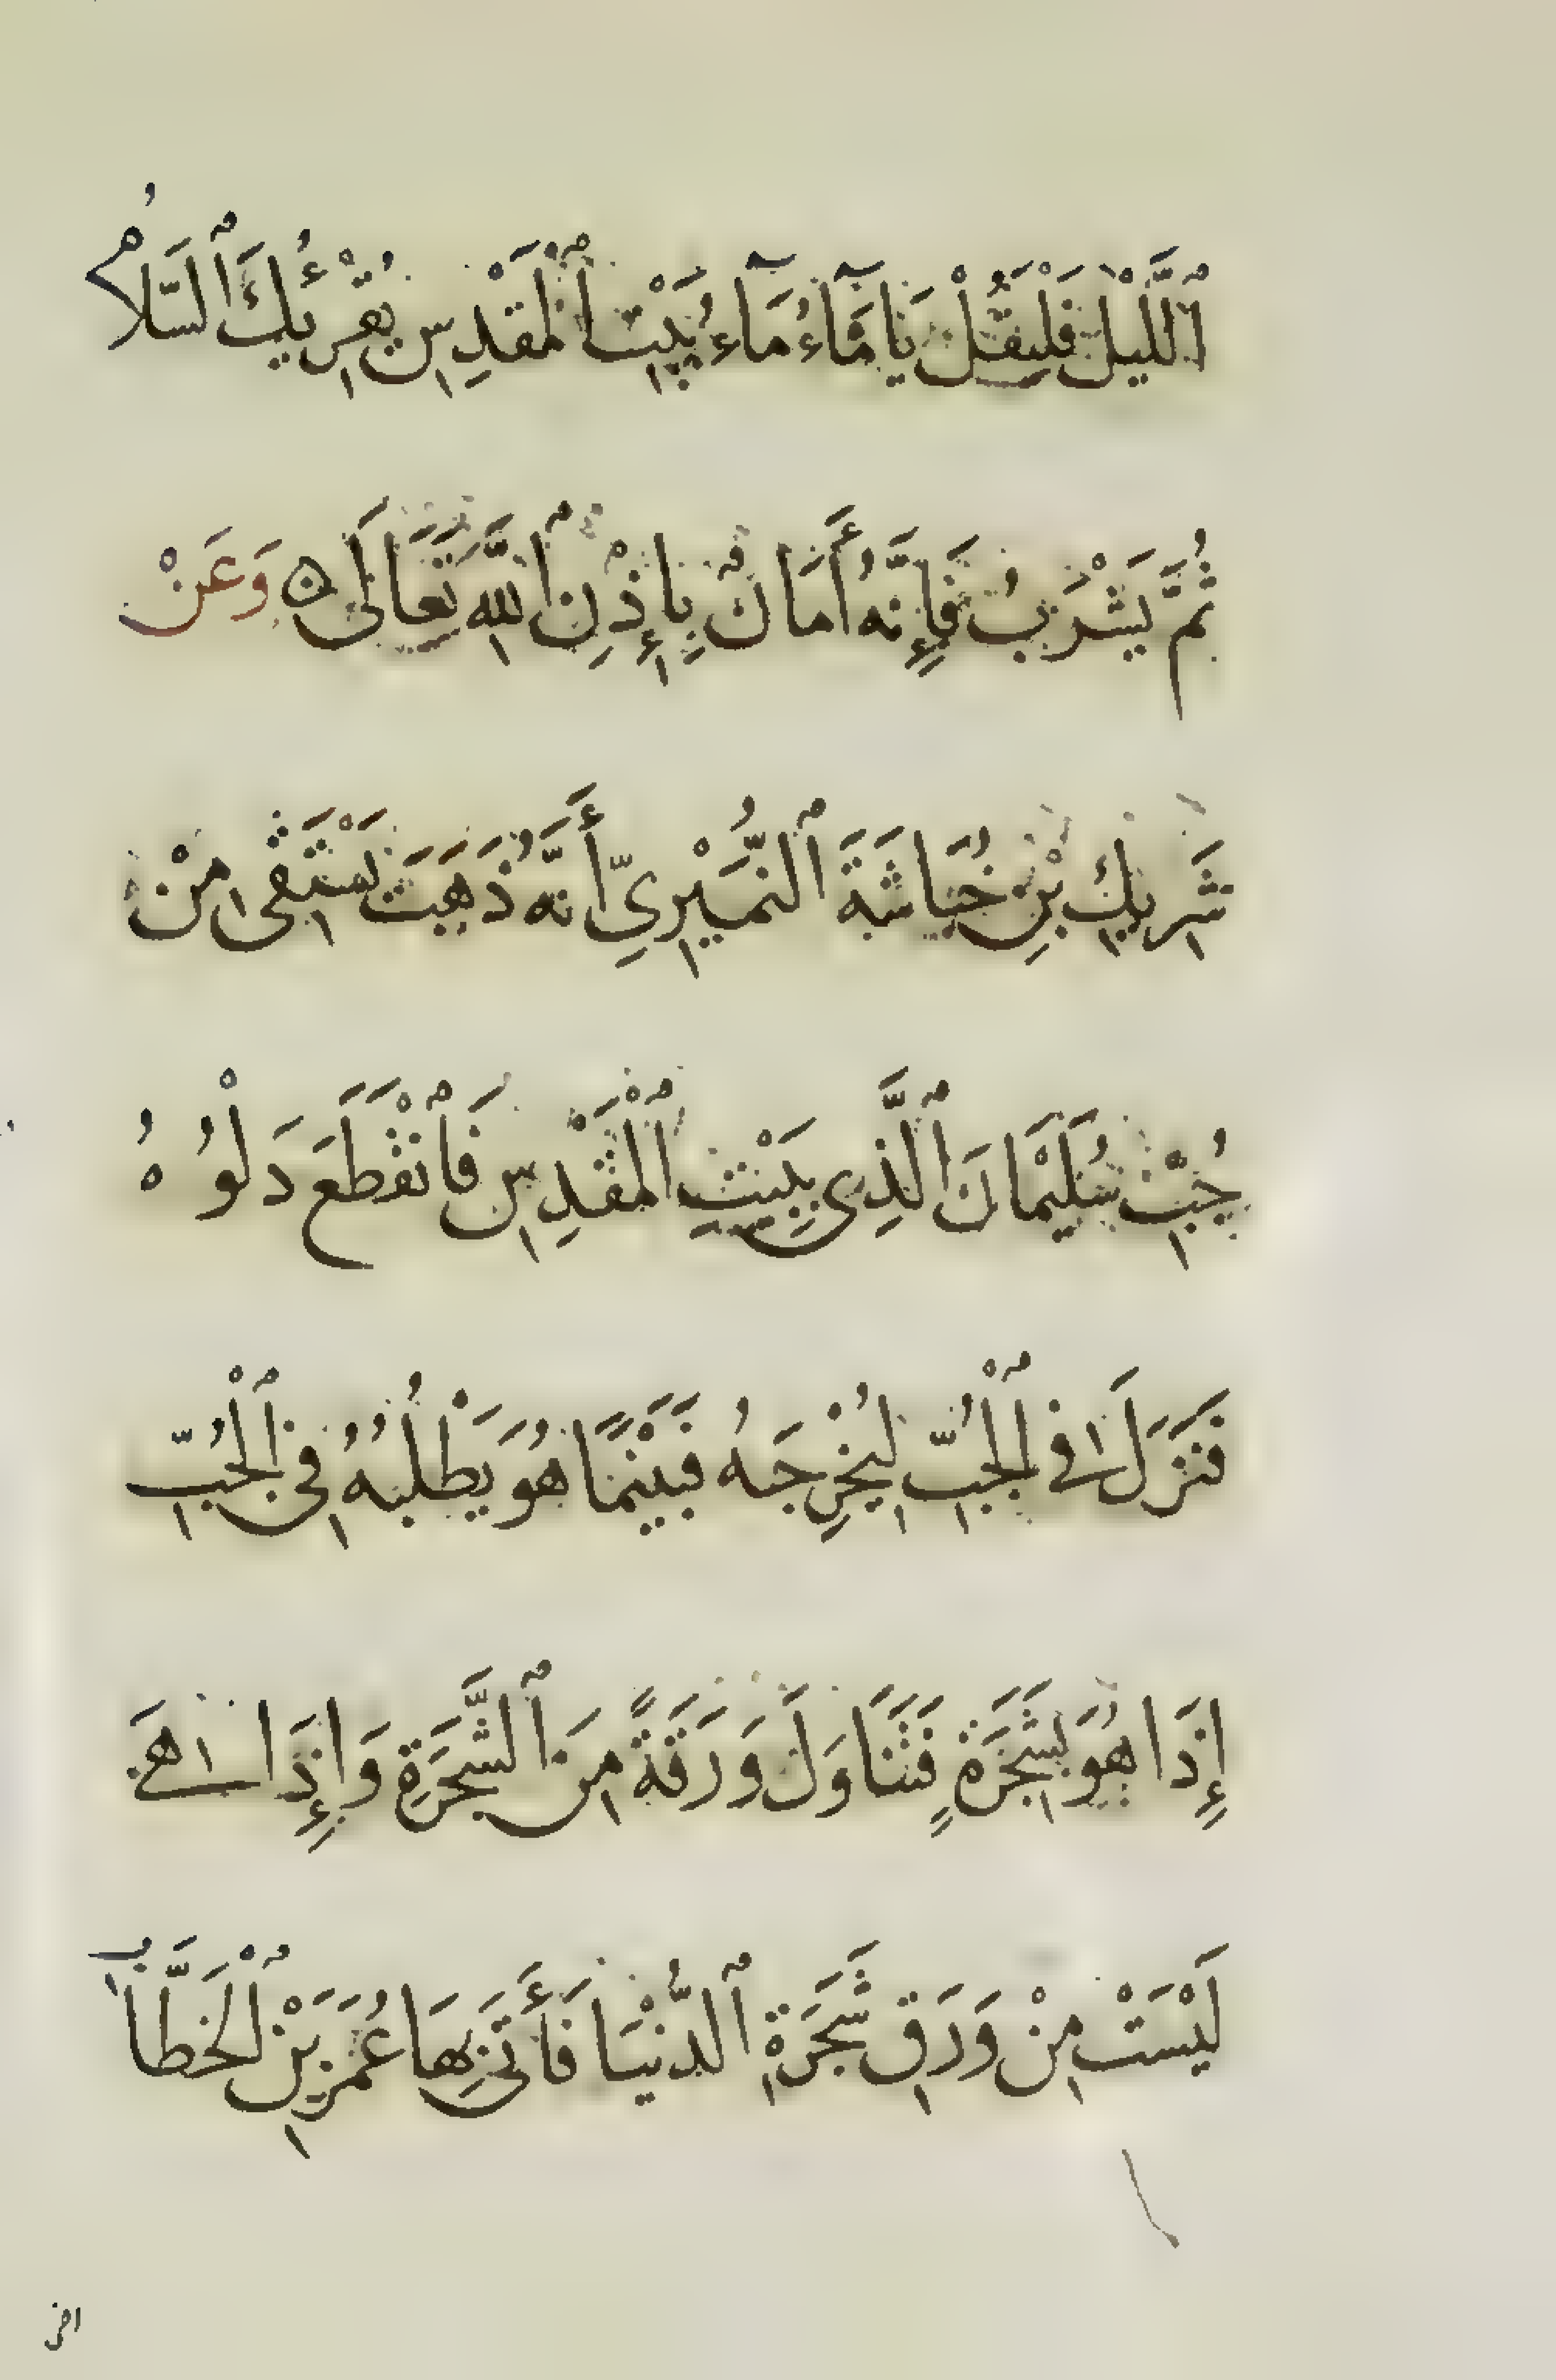 ٱللَّيْلِ فَلْيَقُلْ يَا مَآءُ مَآءُ بَيْتِ ٱلْمَقْدِسِ يُقْرِئُكَ ٱلسَّلَامُ
ثُمَّ يَشْرَبُ فَإِنَّهُ أَمَانٌ بِإِذْنِ ٱللَّهِ تَعَالَى ۝ وَعَنْ
شَرِيكِ بْنِ خُبَاشَةَ ٱلنُّمَيْرِيِّ أَنَّهُ ذَهَبَ يَسْتَقِى مِنْ
جُبِّ سُلَيْمَانَ ٱلَّذِى بِبَيْتِ ٱلْمَقْدِسِ فَٱنْقَطَعَ دَلْوُهُ
فَنَزَلَ فِى ٱلْجُبِّ لِيُخْرِجَهُ فَبَيْنَمَا هُوَ يَطْلُبُهُ فِى ٱلْجُبِّ
إِذَا هُوَ بِشَجَرَةٍ فَتَنَاوَلَ وَرَقَةً مِنَ ٱلشَّجَرَةِ وَإِذَا هِىَ
لَيْسَتْ مِنْ وَرَقِ شَجَرَةِ ٱلدُّنْيَا فَأَتَى بِهَا عُمَرَ بْنَ ٱلْخَطَّابِ